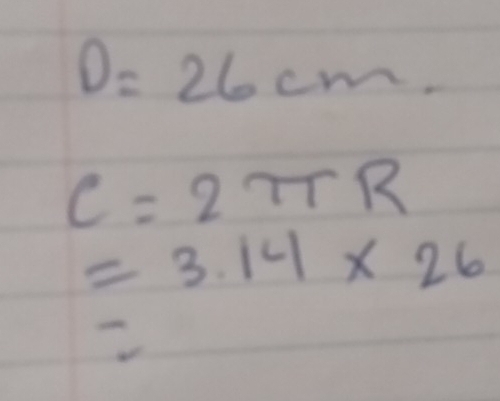 D= 26 cm.
C = 2 π R
= 3.14 × 26
=